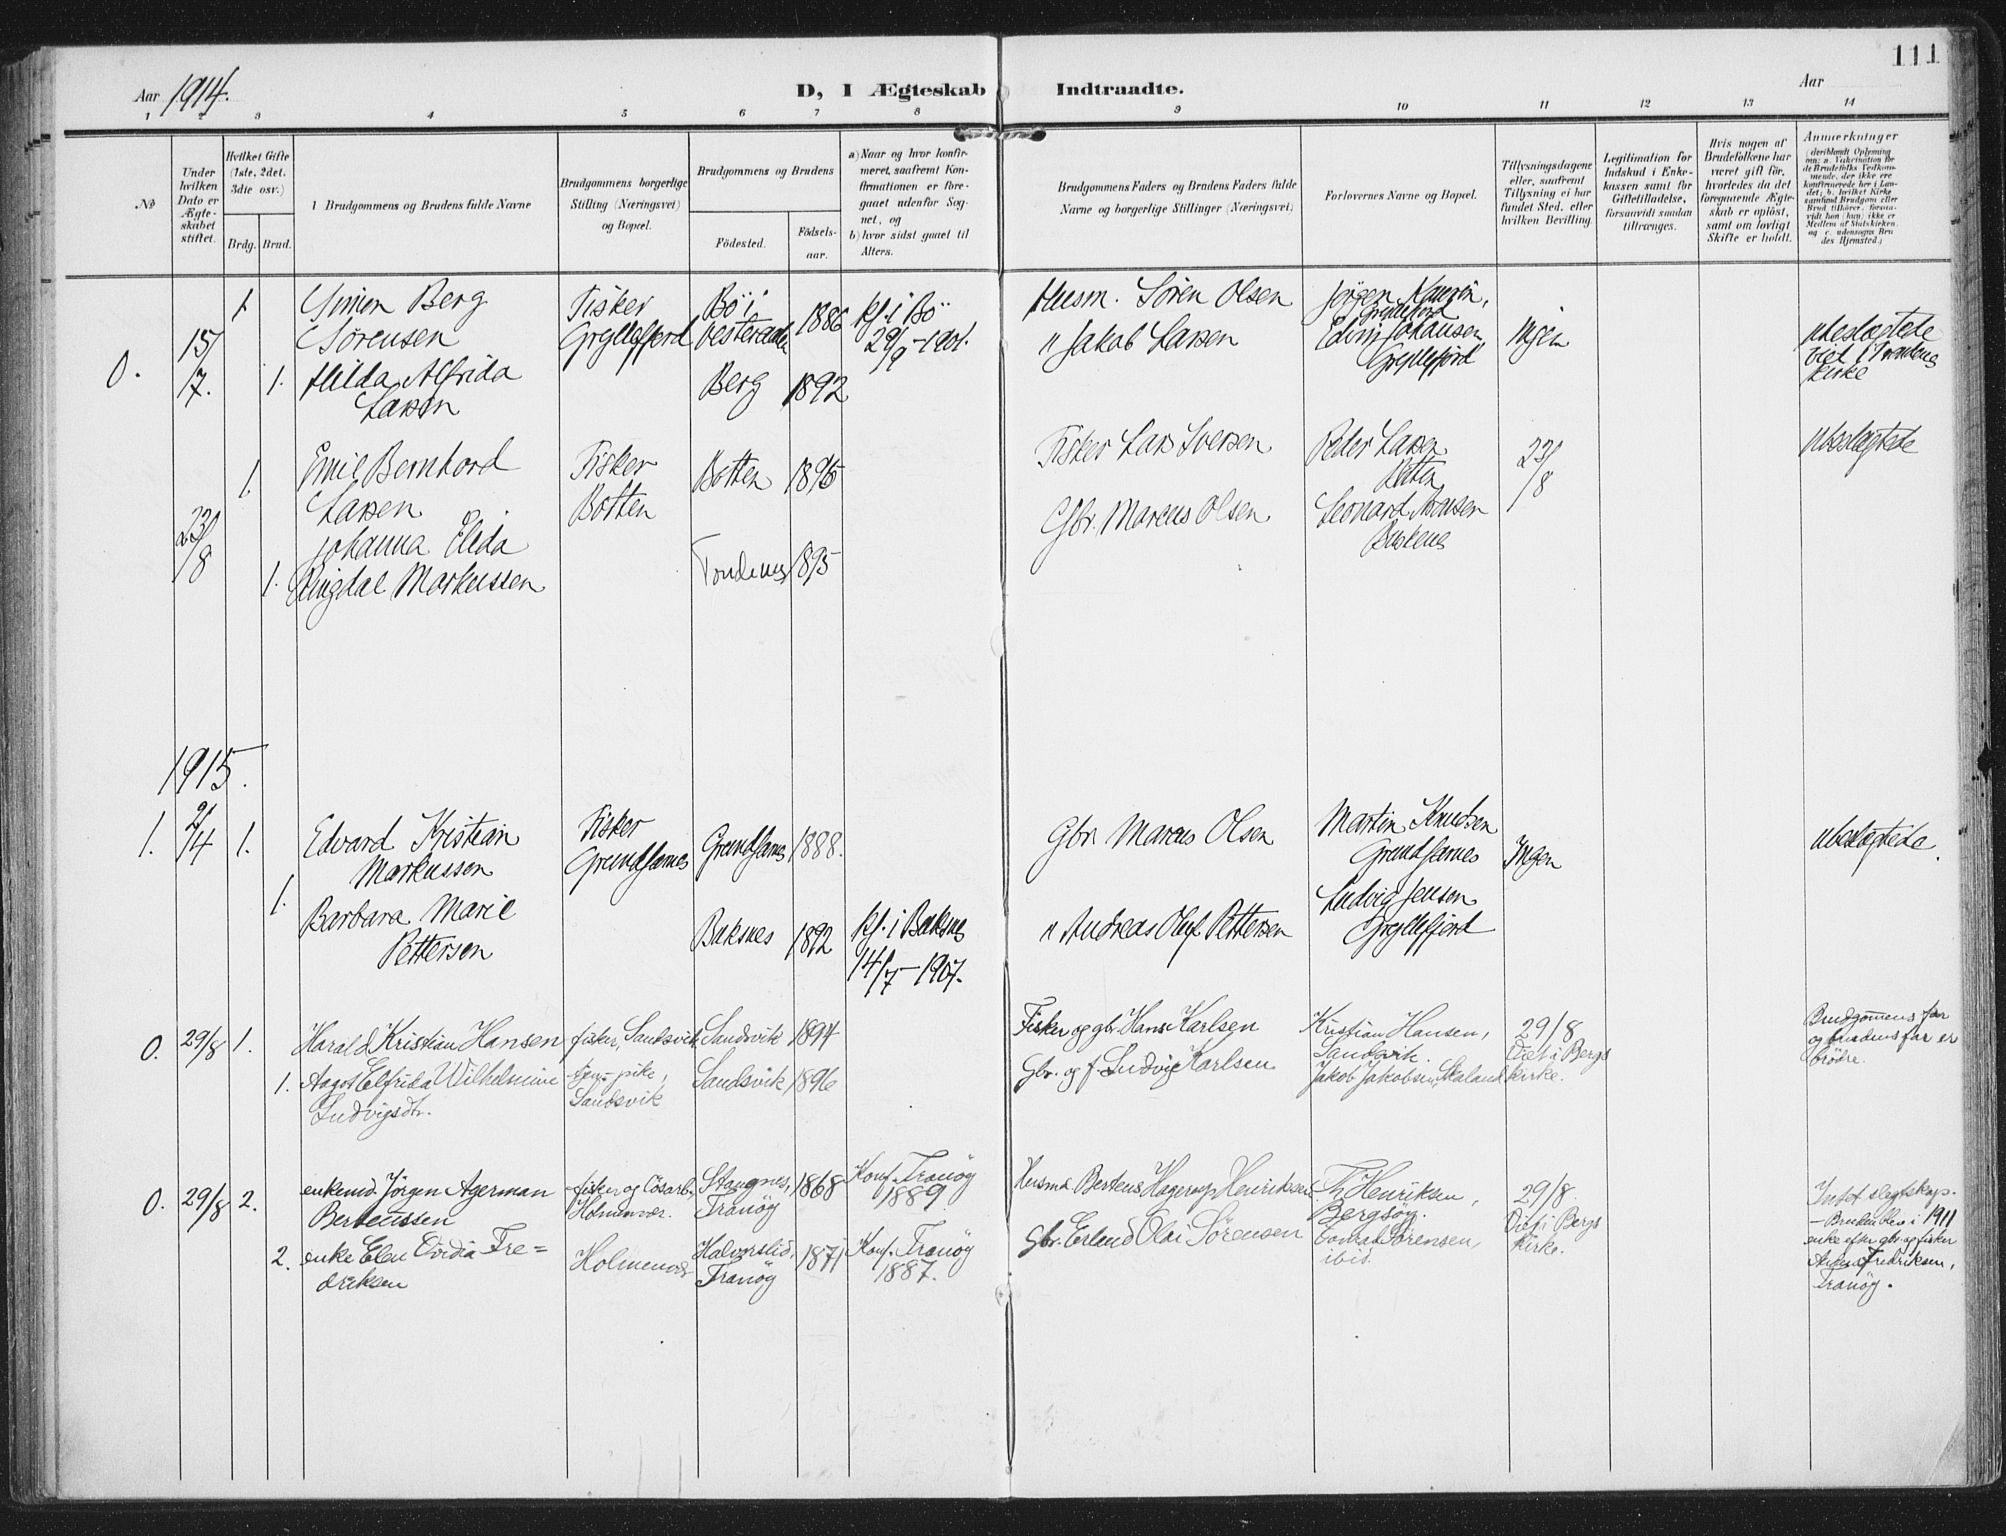 111
Aar 1914.
D, I Ægteskab Indtraadte.
Aar
1 2 3 4 5 6 7 8 9 10 11 12 13 14
No
Under hvilken Dato er Ægteskabet stiftet.
Hvilket Gifte (1ste, 2det. 3die osv.)
Brdg. Brud.
Brudgommens og Brudens fulde Navne
Brudgommens borgerlige Stilling (Næringsvei) og Bopæl.
Brudgommens og Brudens
Fødested.
Fødselsaar.
a) Naar og hvor konfirmeret, saafremt Konfirmationen er foregaaet udenfor Sognet, og
b) hvor sidst gaaet til Alters.
Brudgommens Faders og Brudens Faders fulde Navne og borgerlige Stillinger (Næringsvei)
Forlovernes Navne og Bopæl.
Tillysningsdagene eller, saafremt Tillysning ei har fundet Sted, efter hvilken Bevilling
Legitimation for Indskud i Enkekassen samt for Giftetilladelse, forsaavidt saadan tiltrænges.
Hvis nogen af Brudefolkene har været gift før, hvorledes da det foregaaende Ægteskab er opløst, samt om lovligt Skifte er holdt.
Anmærkninger
0. 15/7. 1 Simen Berg Sørensen
Fisker Gryllefjord
Bö i Vesteraalen 1886
kf. i Bö 29/9-1901.
Husm. Sören Olsen
Jörgen Kaurin, Gryllefjord
1. Hilda Alfrida Larsen
Berg 1892
" Jakob Larsen
Edvin Johansen, Gryllefjord
Ingen
ubeslægtede viet i Torskens kirke
23/8 1. Emil Bernhard Larsen
Fisker Botten
Botten 1895
Fisker Lars Iversen
Peder Larsen Botten
23/8
Ubeslægtede
1. Johanna Elida Ringdal Markussen
1895
Gbr. Marcus Olsen
Leonard
1915.
1. 2/4 1. Edvard Kristian Markussen
Fisker Grundfarnes
Grundfarnes 1888.
Gbr. Marcus Olsen
Martin Knudsen Grundfarnes
Ingen
ubeslægtede.
1. Barbara Marie Pettersen
Baksnes 1892
kf. i Baksnes 14/7-1907.
" Andreas Oluf Pettersen
Ludvig Jensen Gryllefjord
0. 29/8 1. Harald Kristian Hansen
fisker, Sandsvik
Sandsvik 1894
Fisker og gbr. Hans Karlsen
Kristian Hansen, Sandsvik.
29/8 Viet i Bergs kirke.
Brudgommens far og brudens far er brödre.
1. Aagot Elfrida Wilhelmine Ludvigsdtr.
pike, Sandsvik
Sandsvik 1896
Gbr. og f. Ludvig Karlsen
Jakob Jakobsen, Skaland
0. 29/8 2. enkemd. Jörgen Agerman Berteussen
fisker og lösarb. Holmenvær.
Stangnes, Tranöy 1868
Konf. Tranöy 1889.
Husmd. Berteus Hagerup Henriksen
Th Henriksen, Bergsöy.
29/8. Viet i Bergs Kirke.
Intet slegtskap.
– Bruden blev i 1911 enke efter gbr. og fisker Anton Fredriksen, Tranöy.
2. enke Elen Ovidia Fre=driksen
Holmenvær
Halvorslid, Tranöy 1871
Konf. Tranöy 1887.
Gbr. Erland Olai Sörensen
Sörensen, ibid.